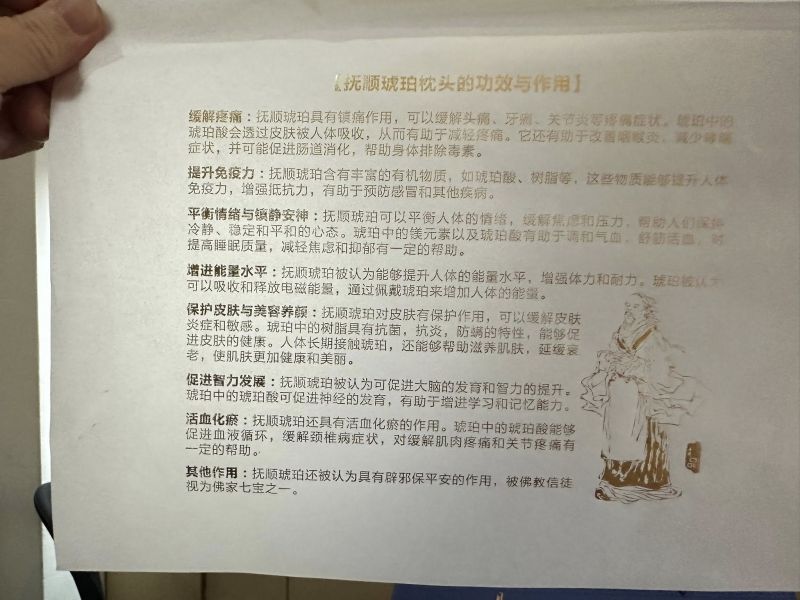 【抚顺琥珀枕头的功效与作用】
缓解疼痛：抚顺琥珀具有镇痛作用，可以缓解头痛、牙痛、关节炎等疼痛症状。琥珀中的
琥珀酸会透过皮肤被人体吸收，从而有助于减轻疼痛。它还有助于改善咽喉炎，减少哮喘
症状，并可能促进肠道消化，帮助身体排除毒素。
提升免疫力：抚顺琥珀含有丰富的有机物质，如琥珀酸、树脂等，这些物质能够提升人体
免疫力，增强抵抗力，有助于预防感冒和其他疾病。
平衡情绪与镇静安神：抚顺琥珀可以平衡人体的情绪，缓解焦虑和压力，帮助人们保持
冷静、稳定和平和的心态。琥珀中的镁元素以及琥珀酸有助于调和气血，舒筋活血，对
提高睡眠质量，减轻焦虑和抑郁有一定的帮助。
增进能量水平：抚顺琥珀被认为能够提升人体的能量水平，增强体力和耐力。琥珀被认为
可以吸收和释放电磁能量，通过佩戴琥珀来增加人体的能量。
保护皮肤与美容养颜：抚顺琥珀对皮肤有保护作用，可以缓解皮肤
炎症和敏感。琥珀中的树脂具有抗菌，抗炎，防螨的特性，能够促
进皮肤的健康。人体长期接触琥珀，还能够帮助滋养肌肤，延缓衰
老，使肌肤更加健康和美丽。
促进智力发展：抚顺琥珀被认为可促进大脑的发育和智力的提升。
琥珀中的琥珀酸可促进神经的发育，有助于增进学习和记忆能力。
活血化瘀：抚顺琥珀还具有活血化瘀的作用。琥珀中的琥珀酸能够
促进血液循环，缓解颈椎病症状，对缓解肌肉疼痛和关节疼痛有
一定的帮助。
其他作用：抚顺琥珀还被认为具有辟邪保平安的作用，被佛教信徒
视为佛家七宝之一。